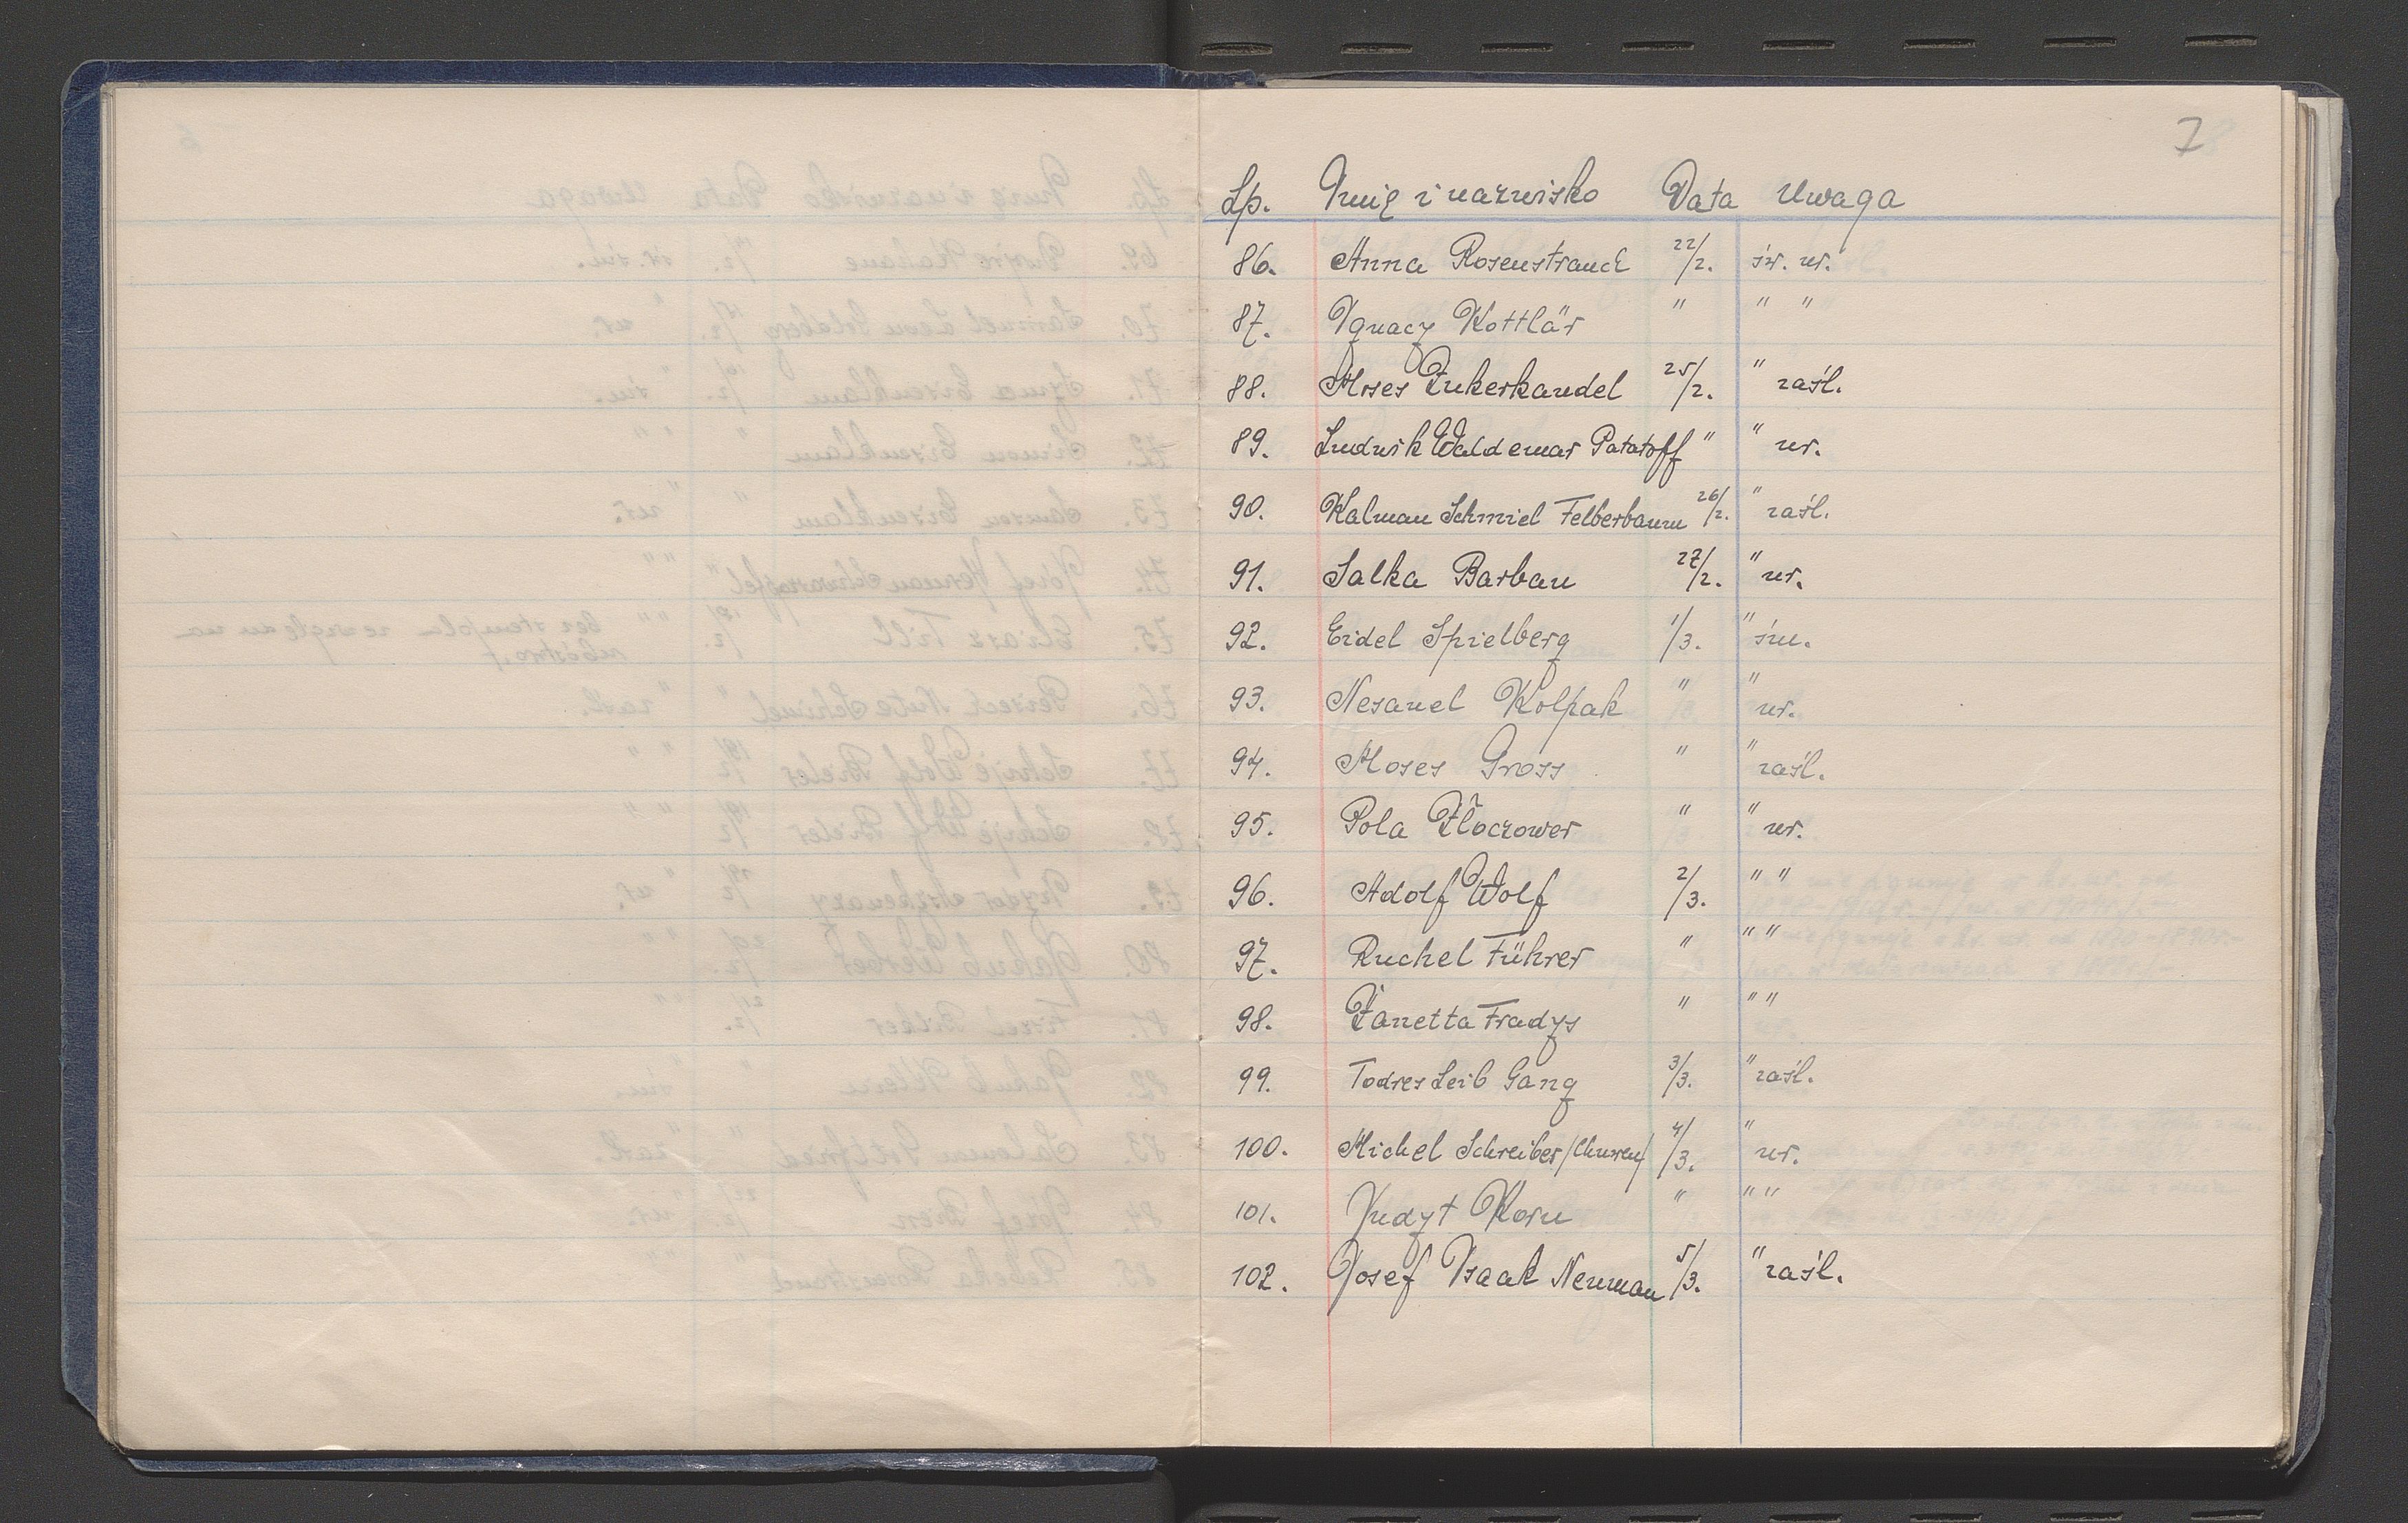 7
Lp. Imię i nazwisko Data Uwaga
86. Anna Rosenstrauch 22/2. św. ur.
87. Ignacy Kottlär " " "
88. Moses Zukerkandel 25/2. " zaśl.
89. Ludwik Waldemar Patatoff " " ur.
90. Kalman Schmiel Felberbaum 26/2. " zaśl.
91. Salka Barban 27/2. " ur.
92. Eidel Spielberg 1/3. " śm.
93. Nesanel Kolpak " " ur.
94. Moses Gross " " zaśl.
95. Pola Złoczower " " ur.
96. Adolf Wolf 2/3. " "
97. Ruchel Führer " " "
98. Żanetta Fradys " " "
99. Todres Leib Gang 3/3. " zaśl.
100. Michel Schreiber 4/3. " ur.
101. Judyt Korn " " "
102. Josef Isaak Neuman 5/3. " zaśl.